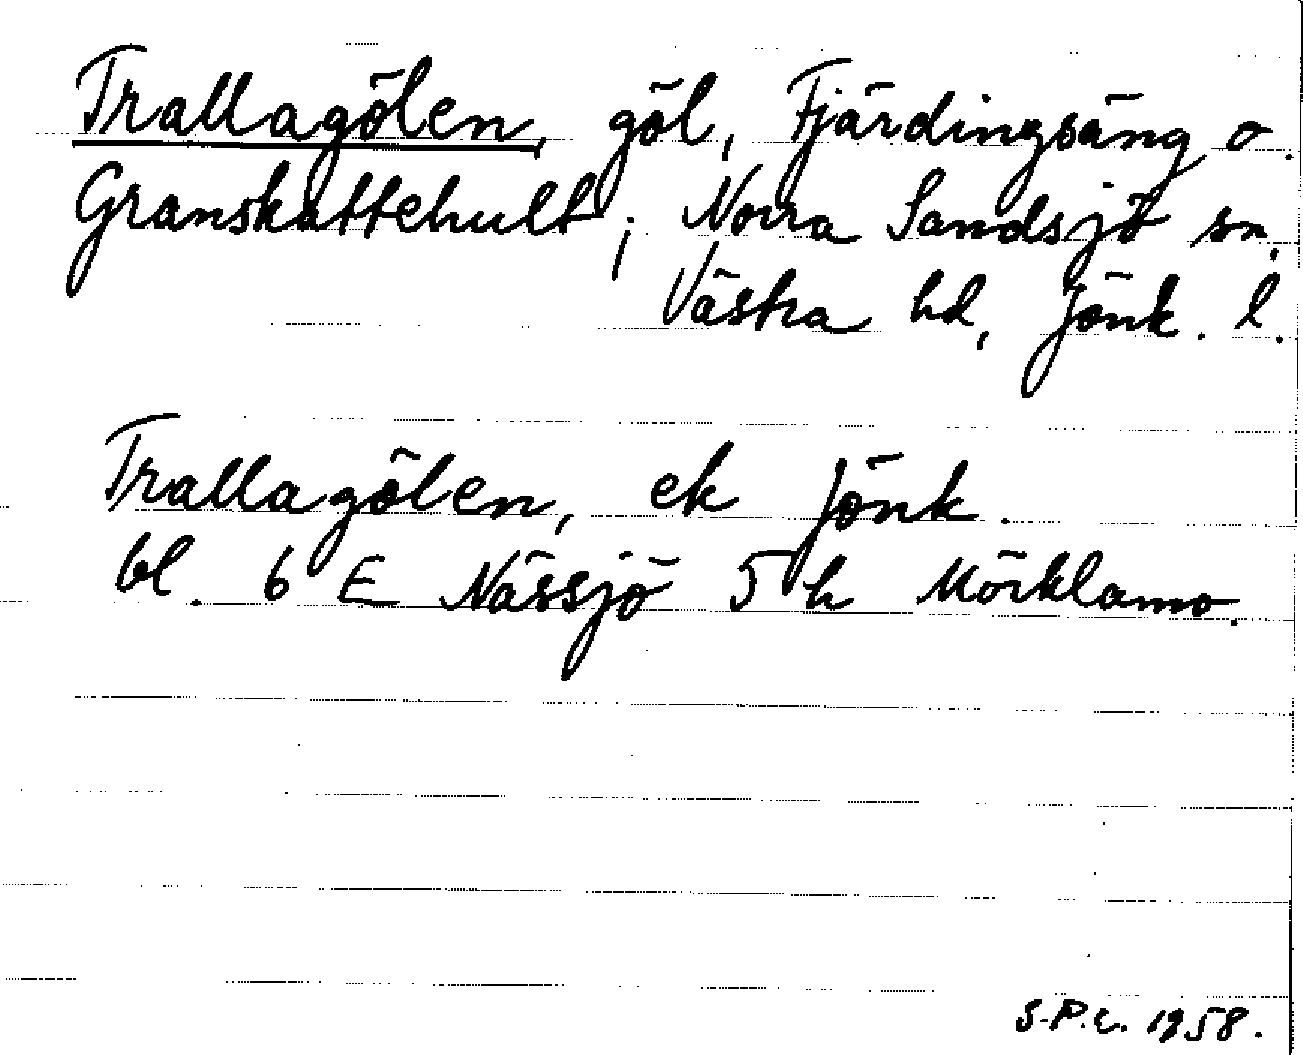 Trallagölen, göl, Fjärdingsäng o.
Granskattehult; Norra Sandsjö sn,
Västra hd, Jönk. l.
Trallagölen, ek Jönk.
bl. 6 E Nässjö 5 h Mörklamo.
S.P.C. 1958.